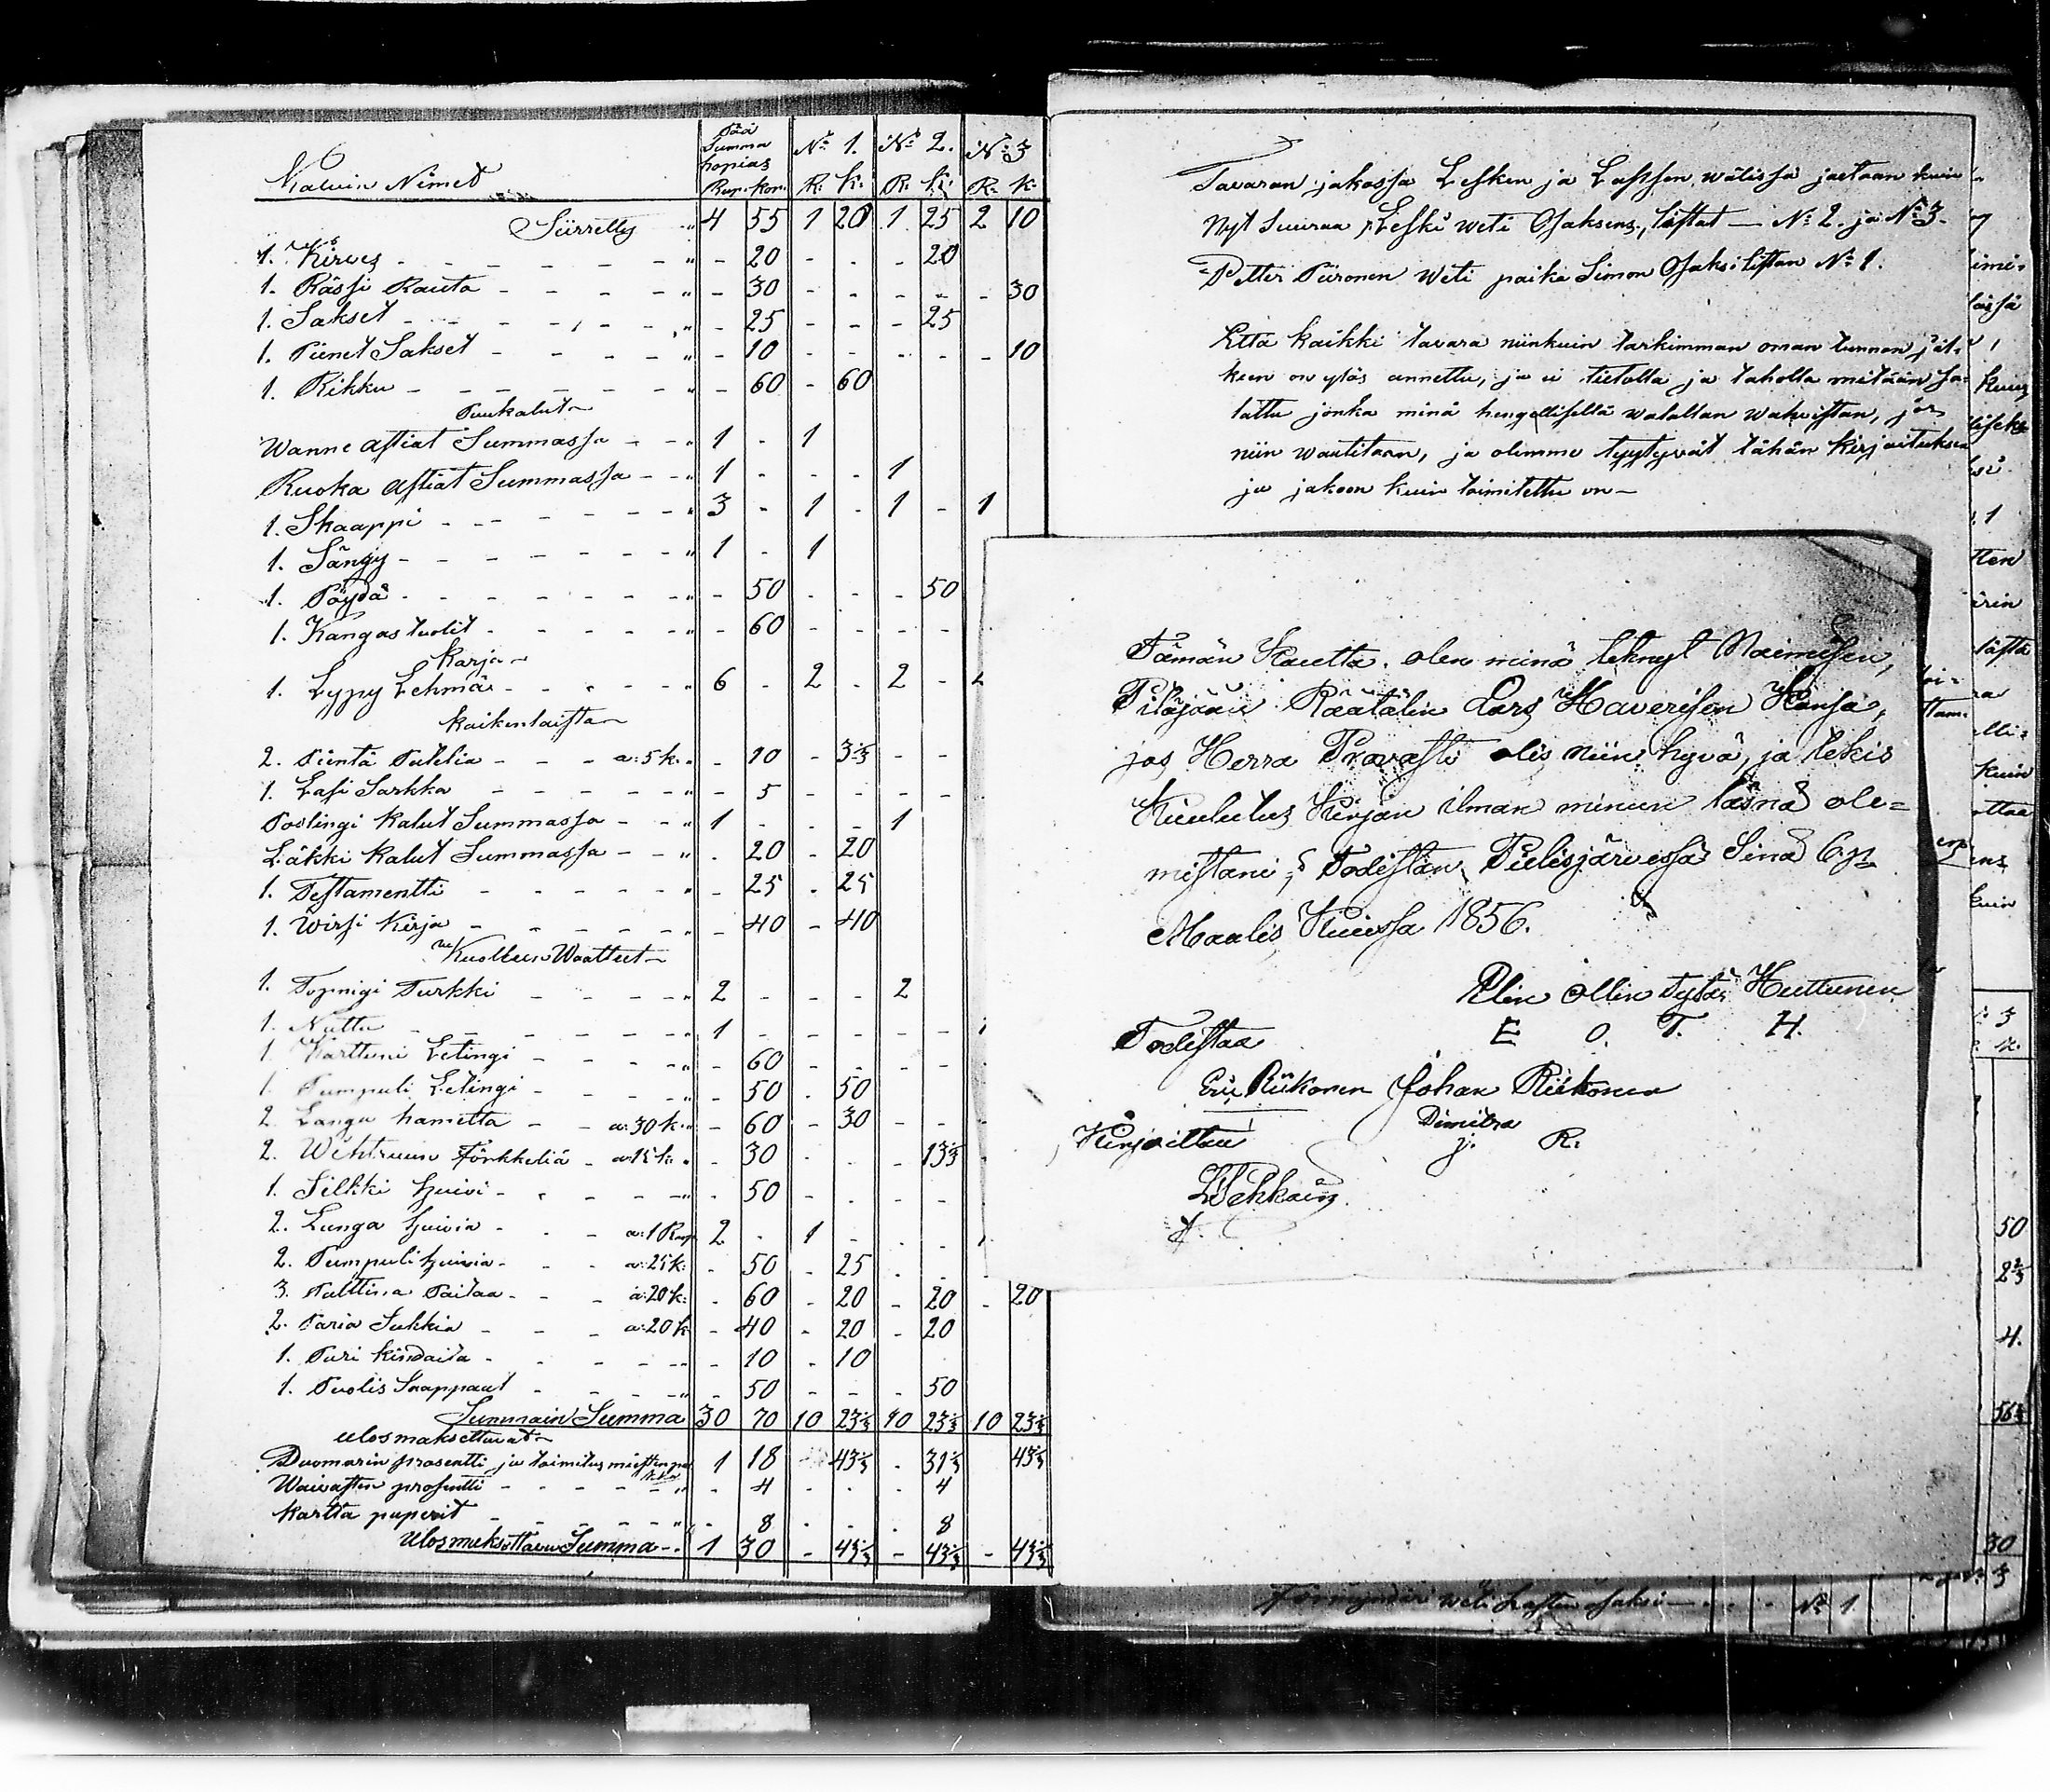 Kaluin Nimet Pää Summa hopias Nº 1. Nº 2. Nº 3
Rup. kop. R. K. R. K. R. K.
Siirretty 4 55 1 20 1 25 2 10
1. Kirves - 20 - - - 20
1. Rässi Rauta - 30 - - - - - 30
1. Sakset - 25 - - - 25
1. Pienet Sakset - 10 - - - - - 10
1. Rikku - 60 - 60
Puukalut
Wanne astiat Summassa 1 - 1
Ruoka astiat Summassa 1 - - - 1
1. Skaappi 3 - 1 - 1 - 1
1. Sängy 1 - 1
1. Pöydä - 50 - - - 50
1. Kangas tuolit - 60 - - - -
Karja
1. Lypy Lehmä 6 - 2 - 2 - 2
Kaikenlaista
2. Pientä Puteliа a: 5 k. - 10 - 3⅓ - -
1. Lasi Sarkka - 5 - - - -
Poslingi kalut Summassa 1 - - - 1
Läkki kalut Summassa - 20 - 20
1. Testamentti - 25 - 25
1. Wirsi Kirja - 40 - 40
Kuolleen Waatteet
1. Topnigi Turkki 2 - - - 2
1. Nuttu 1 - - - - -
1. Karttuni Letingi - 60 - - - -
1. Pumpuli Letingi - 50 - 50
2. Langa hametta a: 30 k. - 60 - 30 - -
2. Wehtruun Förkkeliä a: 15 k. - 30 - - - 13⅓
1. Silkki huivi - 50 - - - -
2. Langa huivia a: 1 Rup. 2 - 1 - - -
2. Pumpuli huivia a: 25 k. - 50 - 25 - -
3. Palttina Paitaa a: 20 k. - 60 - 20 - 20 - 20
2. Paria Sukkia a: 20 k. - 40 - 20 - 20
1. Pari kindaita - 10 - 10
1. Puolis Saappaat - 50 - - - 50
Summain Summa 30 70 10 23⅓ 10 23⅓ 10 23⅓
Ulosmaksettavat
Duomarin prosentti ja toimitus miesten 1 18 - 43⅓ - 31⅓ 43⅓
Waivasten prosentti - 4 - - - 4
Kartta paperit - 8 - - - 8
Ulosmaksottava Summa 1 30 - 43⅓ - 43⅓ - 43⅓
Tavaran jakossa Lesken ja Lapsen välissä jaetaan kuin
Nyt Suuraa, Leski weti Osaksens, listat — Nº 2. ja Nº 3.
Petter Piironen Weti paika Simon Osaksi listan Nº 1.
Että kaikki tavara niinkuin tarkimman oman tunnon jäl-
keen on ylös annettu, ja ei tiettolla ja taholla mitään sa-
lattu jonka minä hengellisellä walallan wahvistan, jos
niin waatitaan, ja olemme tyytyvät tähän kirjoitukseen
ja jakoon kuin toimitettu on —
Tämän Kautta olen minä tehnyt Naimisen,
Pitäjään Räätälin Lars Haverisen Kansa,
jos Herra Pravasti olis niin hyvä, ja tekis
Kuulutus Kirjan ilman minun läsnä ole=
mistani; Todistan Pielisjärvessä Sinä 6 p
Maalis Kuussa 1856.
Elin Ollin tytär Huttunen
E O. T. H.
Todistaa
Eric Riikonen Johan Riikonen
Dimitra
j. R:
Kirjoittaa
L. Pehkoinen
weti Lasten osaksi — Nº 1